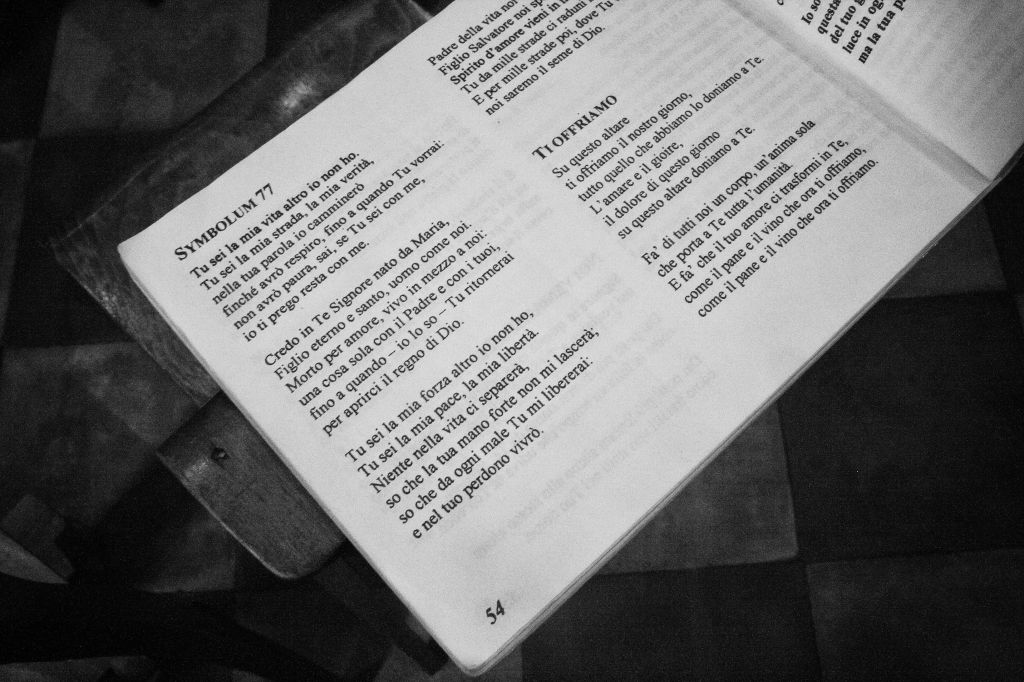 SYMBOLUM 77
Tu sei la mia vita altro io non ho.
Tu sei la mia strada, la mia verità,
nella tua parola io camminerò
finché avrò respiro, fino a quando Tu vorrai:
non avrò paura, sai, se Tu sei con me,
io ti prego resta con me.
Credo in Te Signore nato da Maria,
Figlio eterno e santo, uomo come noi.
Morto per amore, vivo in mezzo a noi:
una cosa sola con il Padre e con i tuoi,
fino a quando – io lo so – Tu ritornerai
per aprirci il regno di Dio.
Tu sei la mia forza altro io non ho,
Tu sei la mia pace, la mia libertà.
Niente nella vita ci separerà,
so che la tua mano forte non mi lascerà;
so che da ogni male Tu mi libererai:
e nel tuo perdono vivrò.
Padre della vita noi
Figlio Salvatore noi
Spirito d'amore vieni in
Tu da mille strade ci raduni
E per mille strade poi, dove Tu
noi saremo il seme di Dio.
TI OFFRIAMO
Su questo altare
ti offriamo il nostro giorno,
tutto quello che abbiamo lo doniamo a Te.
L'amare e il gioire,
il dolore di questo giorno
su questo altare doniamo a Te.
Fa' di tutti noi un corpo, un'anima sola
che porta a Te tutta l'umanità.
E fa' che il tuo amore ci trasformi in Te,
come il pane e il vino che ora ti offriamo,
come il pane e il vino che ora ti offriamo.
Io so
questa
del tuo
luce in
ma la tua
54